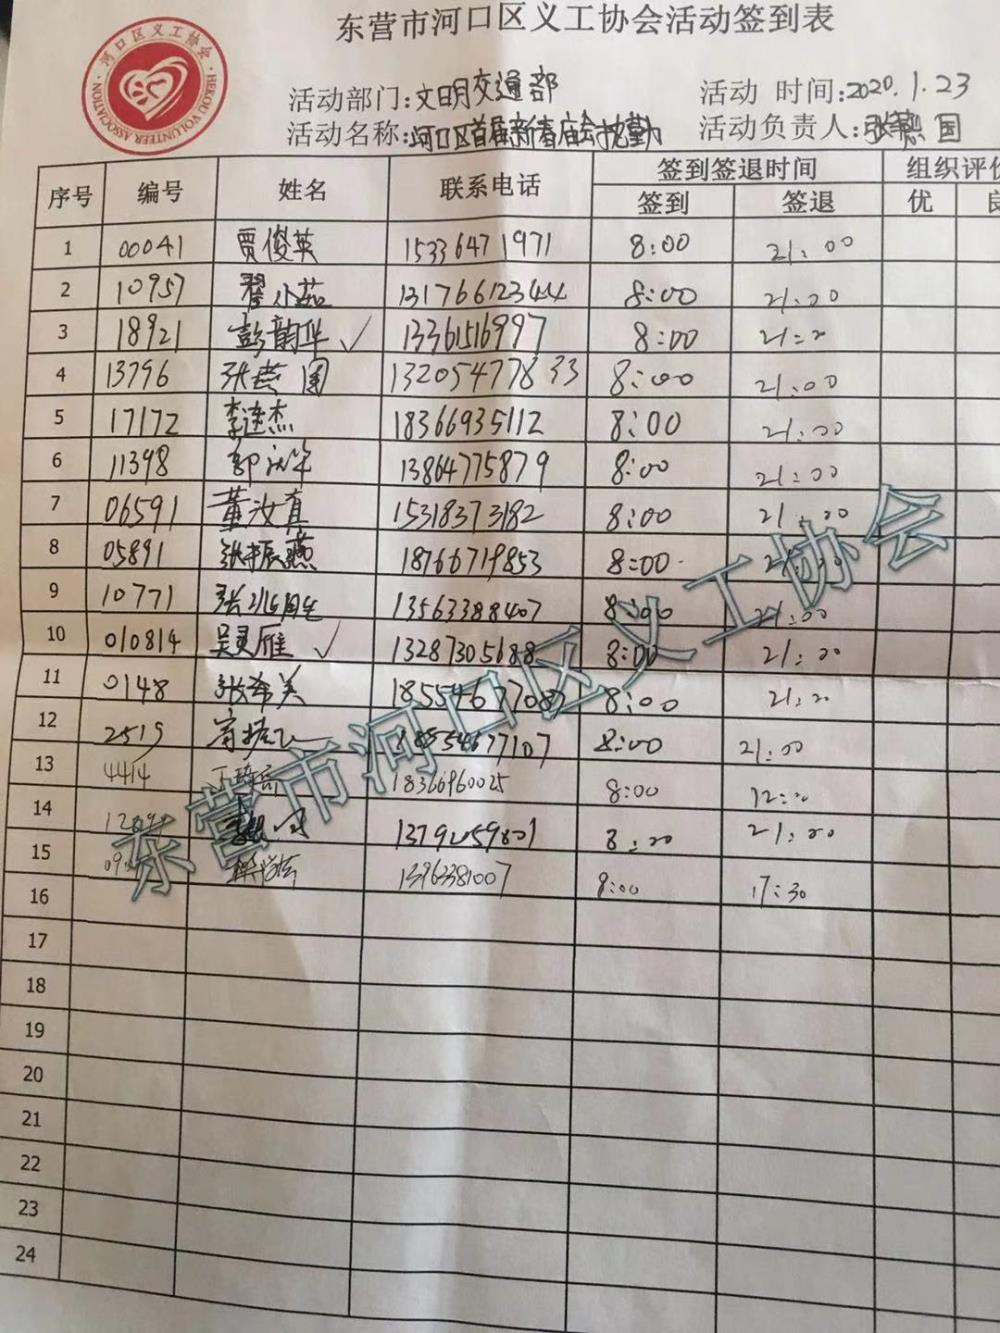 东营市河口区义工协会活动签到表
河口区义工协会
HEKOU VOLUNTEER ASSOCIATION
活动部门:文明交通部 活动 时间:2020.1.23
活动名称:河口区首届新春庙会执勤 活动负责人:张燕国
序号 编号 姓名 联系电话 签到签退时间 组织评价
签到 签退 优 良
1 00041 贾俊英 15336471971 8:00 21:00
2 10957 翟小茹 13176612344 8:00 21:00
3 18921 彭韵华 ✓ 13361516997 8:00 21:
4 13796 张燕国 13205477833 8:00 21:00
5 17172 李连杰 18366935112 8:00 21:00
6 11398 郭 13864775879 8:00 21:00
7 06591 董汝真 15318373182 8:00 21:00
8 05891 张振燕 18766719853 8:00
9 10771 张 13563388407 8:00 21:00
10 010814 吴灵雁 ✓ 13287305688 8:00 21:00
11 0148 张希美 8:00 21:
12 2519 18854677107 8:00 21:00
13 4414 18366960025 8:00 12:
14 21:00
15 8:00 17:30
16
17
18
19
20
21
22
23
24
东营市河口区义工协会